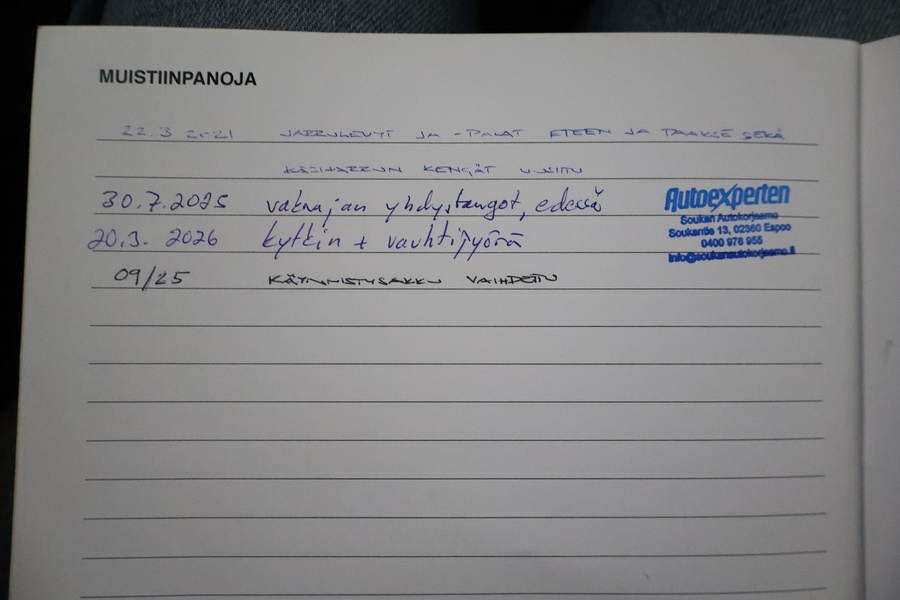 MUISTIINPANOJA
22.3 2021 JARRULEVYT JA -PALAT ETEEN JA TAAKSE SEKÄ
KÄSIJARRUN KENGÄT UUSITU
30.7.2025 vakaajan yhdystangot, edessä
20.3. 2026 kytkin + vauhtipyörä
09/25 KÄYNNISTYSAKKU VAIHDETTU
Autoexperten
Soukan Autokorjaamo
Soukantie 13, 02360 Espoo
0400 976 955
info@soukanautokorjaamo.fi